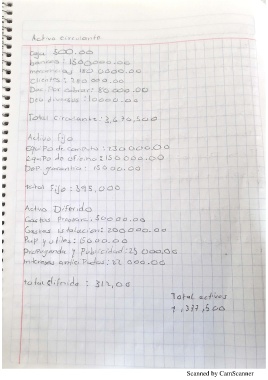 Activo circulante
Caja 500.00
bancos: 1500000.00
mercancias 180 0000.00
Clientes: 380 000.00
Doc. Por cobrar: 80 000.00
Deu diversos: 10000.00
Total Circulante:
Activo Fijo
Equipo de computo: 230 000.00
Equipo de oficina: 150 000.00
Dep garantia: 15 000.00
total Fijo: 395,000
Activo Diferido
Gastos
Gastos instalacion: 200 000.00
Pap y utiles: 6000.00
Propaganda y Publicidad: 25 000.00
intereses anticipados: 22 000.00
total diferido: 312,00
Total activos
Scanned by CamScanner